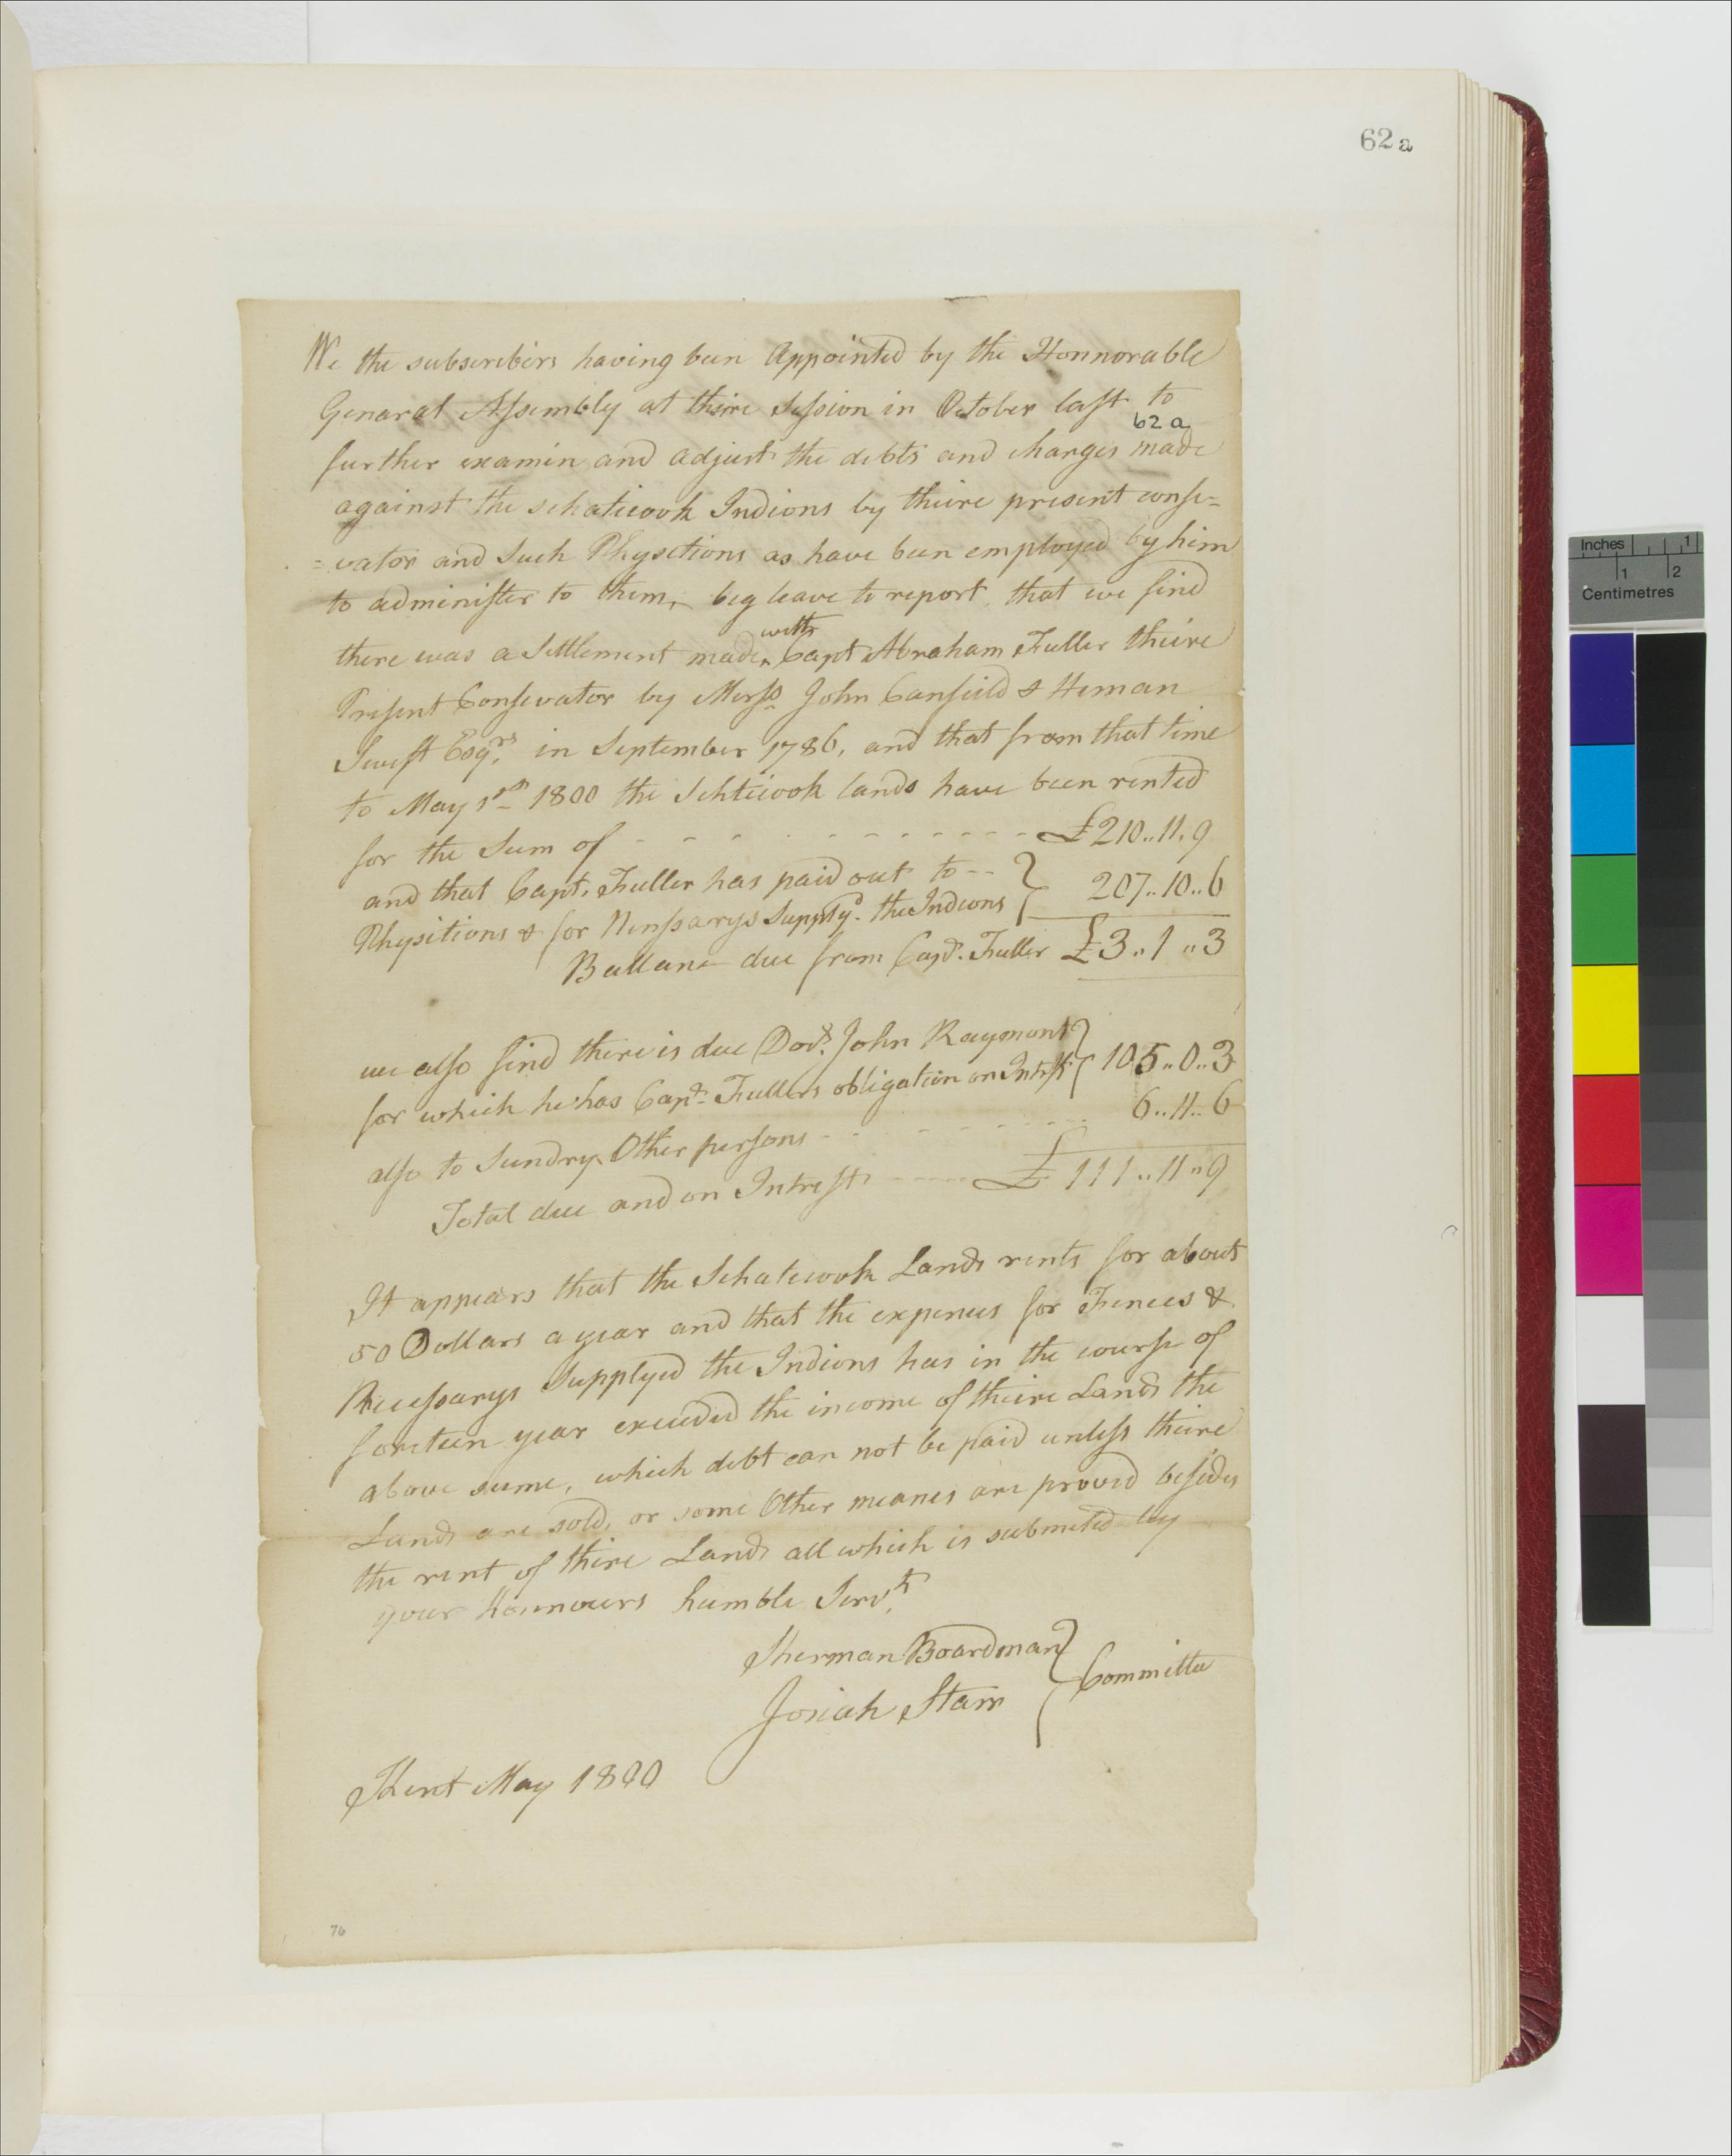 62a
We the subscribers having been Appointed by the Honnorable
Genarat Assembly at theire Session in October last to
62a
further examin and adjust the debts and charges made
against the schaticook Indions by theire present conse=
=vator and such Physitions as have been employed by him
to administer to them, beg leave to report, that we find
there was a Settlement made with Capt Abraham Fuller theire
Present Consevator by Messs John Canfield & Heman
Swift Esqrs, in September 1786, and that from that time
to May 1st 1800 the Schticook lands have been rented
for the Sum of - - - - - - - - - - £210..11.9
and that Capt. Fuller has paid out to -- } 207..10..6
Physitions & for Nessarys Supplyd. the Indions
Ballanc due from Capt. Fuller £3..1..3
we also find there is due Doct. John Raymont } 105..0..3
for which he has Capt. Fullers obligation on Intrst
also to Sundry Other persons - - - - - - 6..11..6
Total due and on Intrest - - - - £111..11..9
It appears that the Schatecook Lands rents for about
50 Dollars a year and that the expences for Fences &
Necessarys Supplyed the Indions has in the course of
forteen year exceeded the income of theire Lands the
above sume, which debt can not be paid unless theire
Lands are sold, or some Other meanes are proved besides
the rent of thire Lands all which is submited by
your Honnours humble Servt.
Sherman Boardman } Committee
Josiah Starr
Kent May 1800
76
Inches 1
1 2
Centimetres